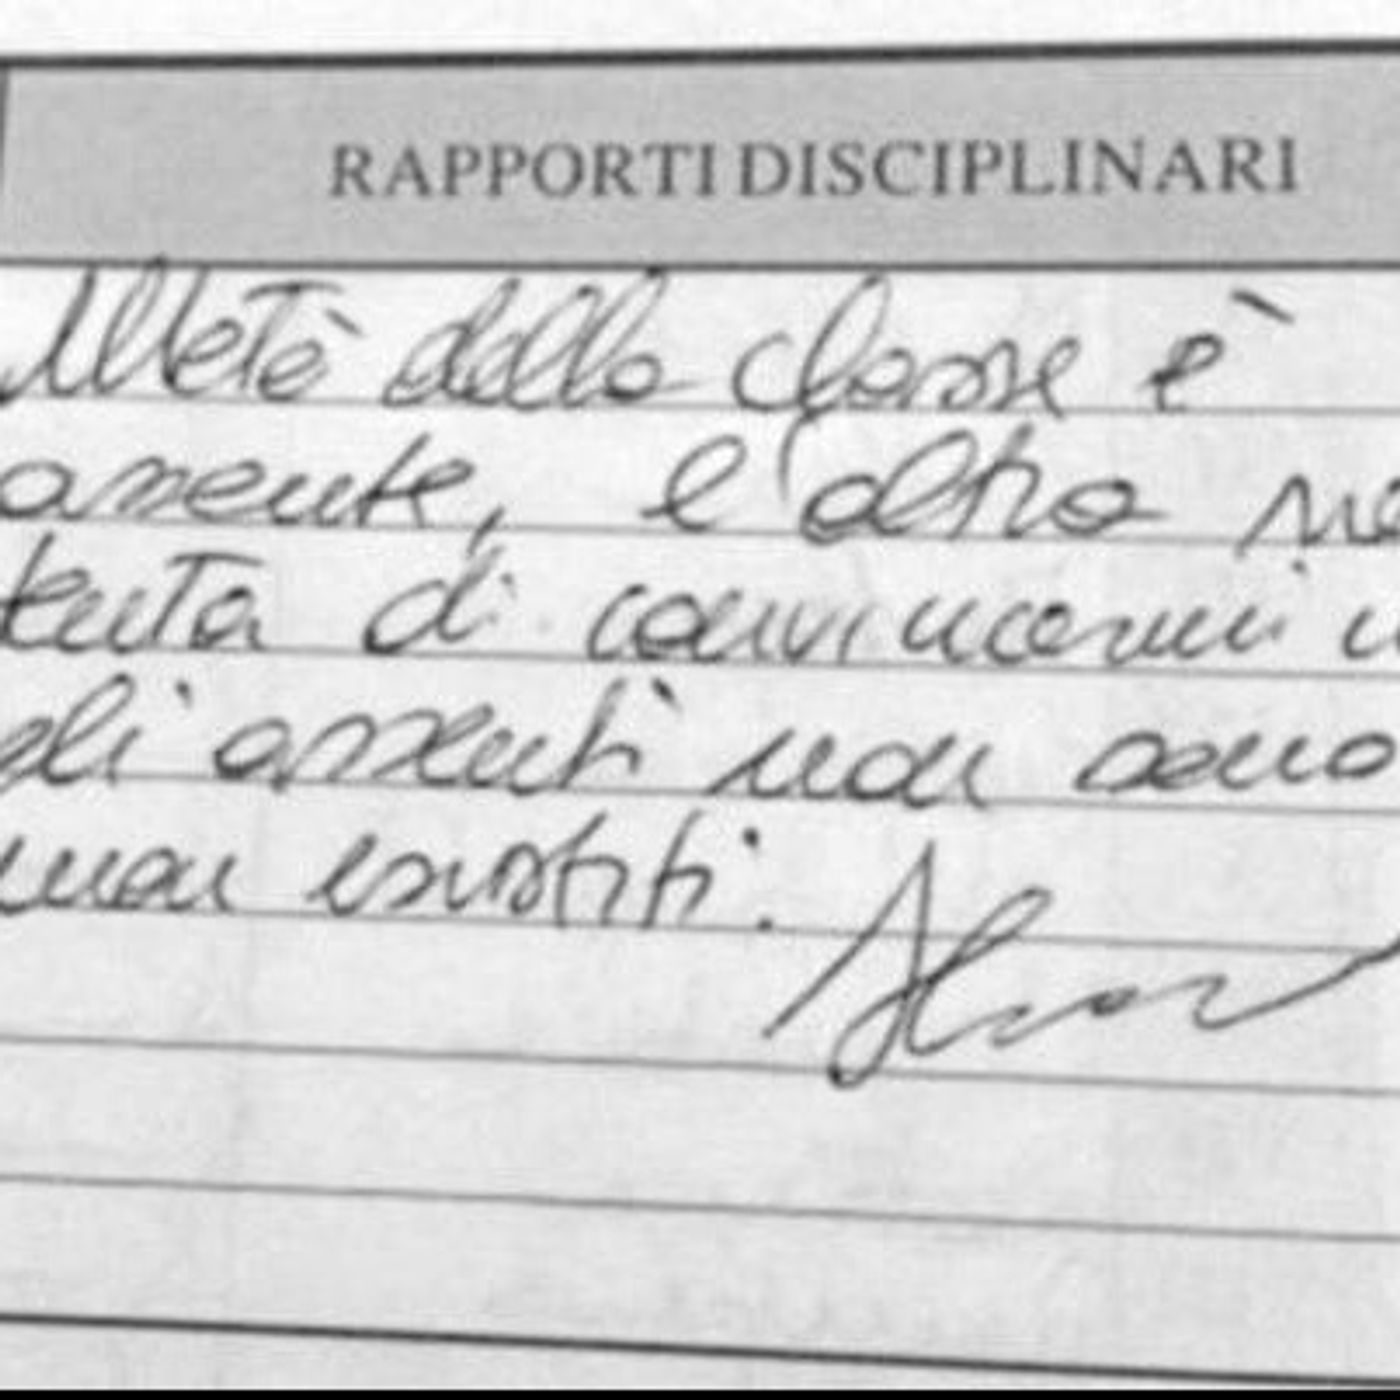 RAPPORTI DISCIPLINARI
Metà della classe è
assente, e l'altra me
tenta di convincermi
gli assenti non sono
mai esistiti.